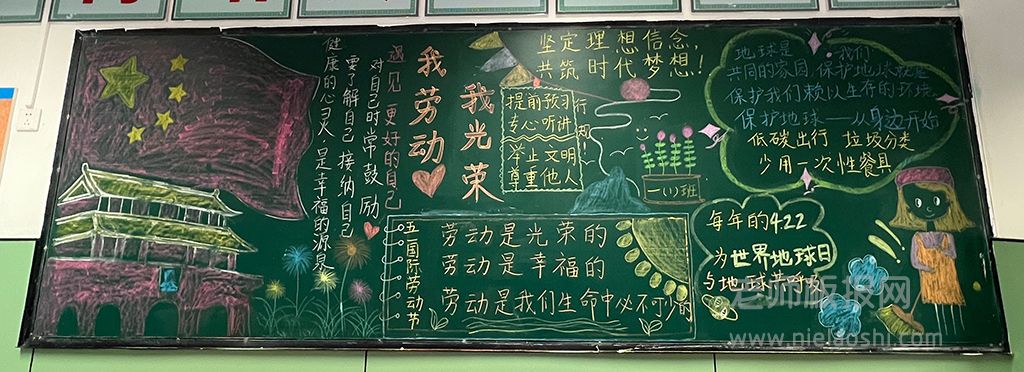 遇见更好的自己
对自己时常鼓励
要了解自己接纳自己
健康的心灵,是幸福的源泉
我劳动
我光荣
坚定理想信念,
共筑时代梦想!
提前预习
专心听讲
举止文明
尊重他人
行规!
一(1)班
地球是我们
共同的家园,保护地球就是
保护我们赖以生存的环境
保护地球——从身边开始
低碳出行 垃圾分类
少用一次性餐具
五一国际劳动节
劳动是光荣的
劳动是幸福的
劳动是我们生命中必不可少的
每年的4.22
为世界地球日
与地球共呼吸
老师板报网
www.nielgoshi.com